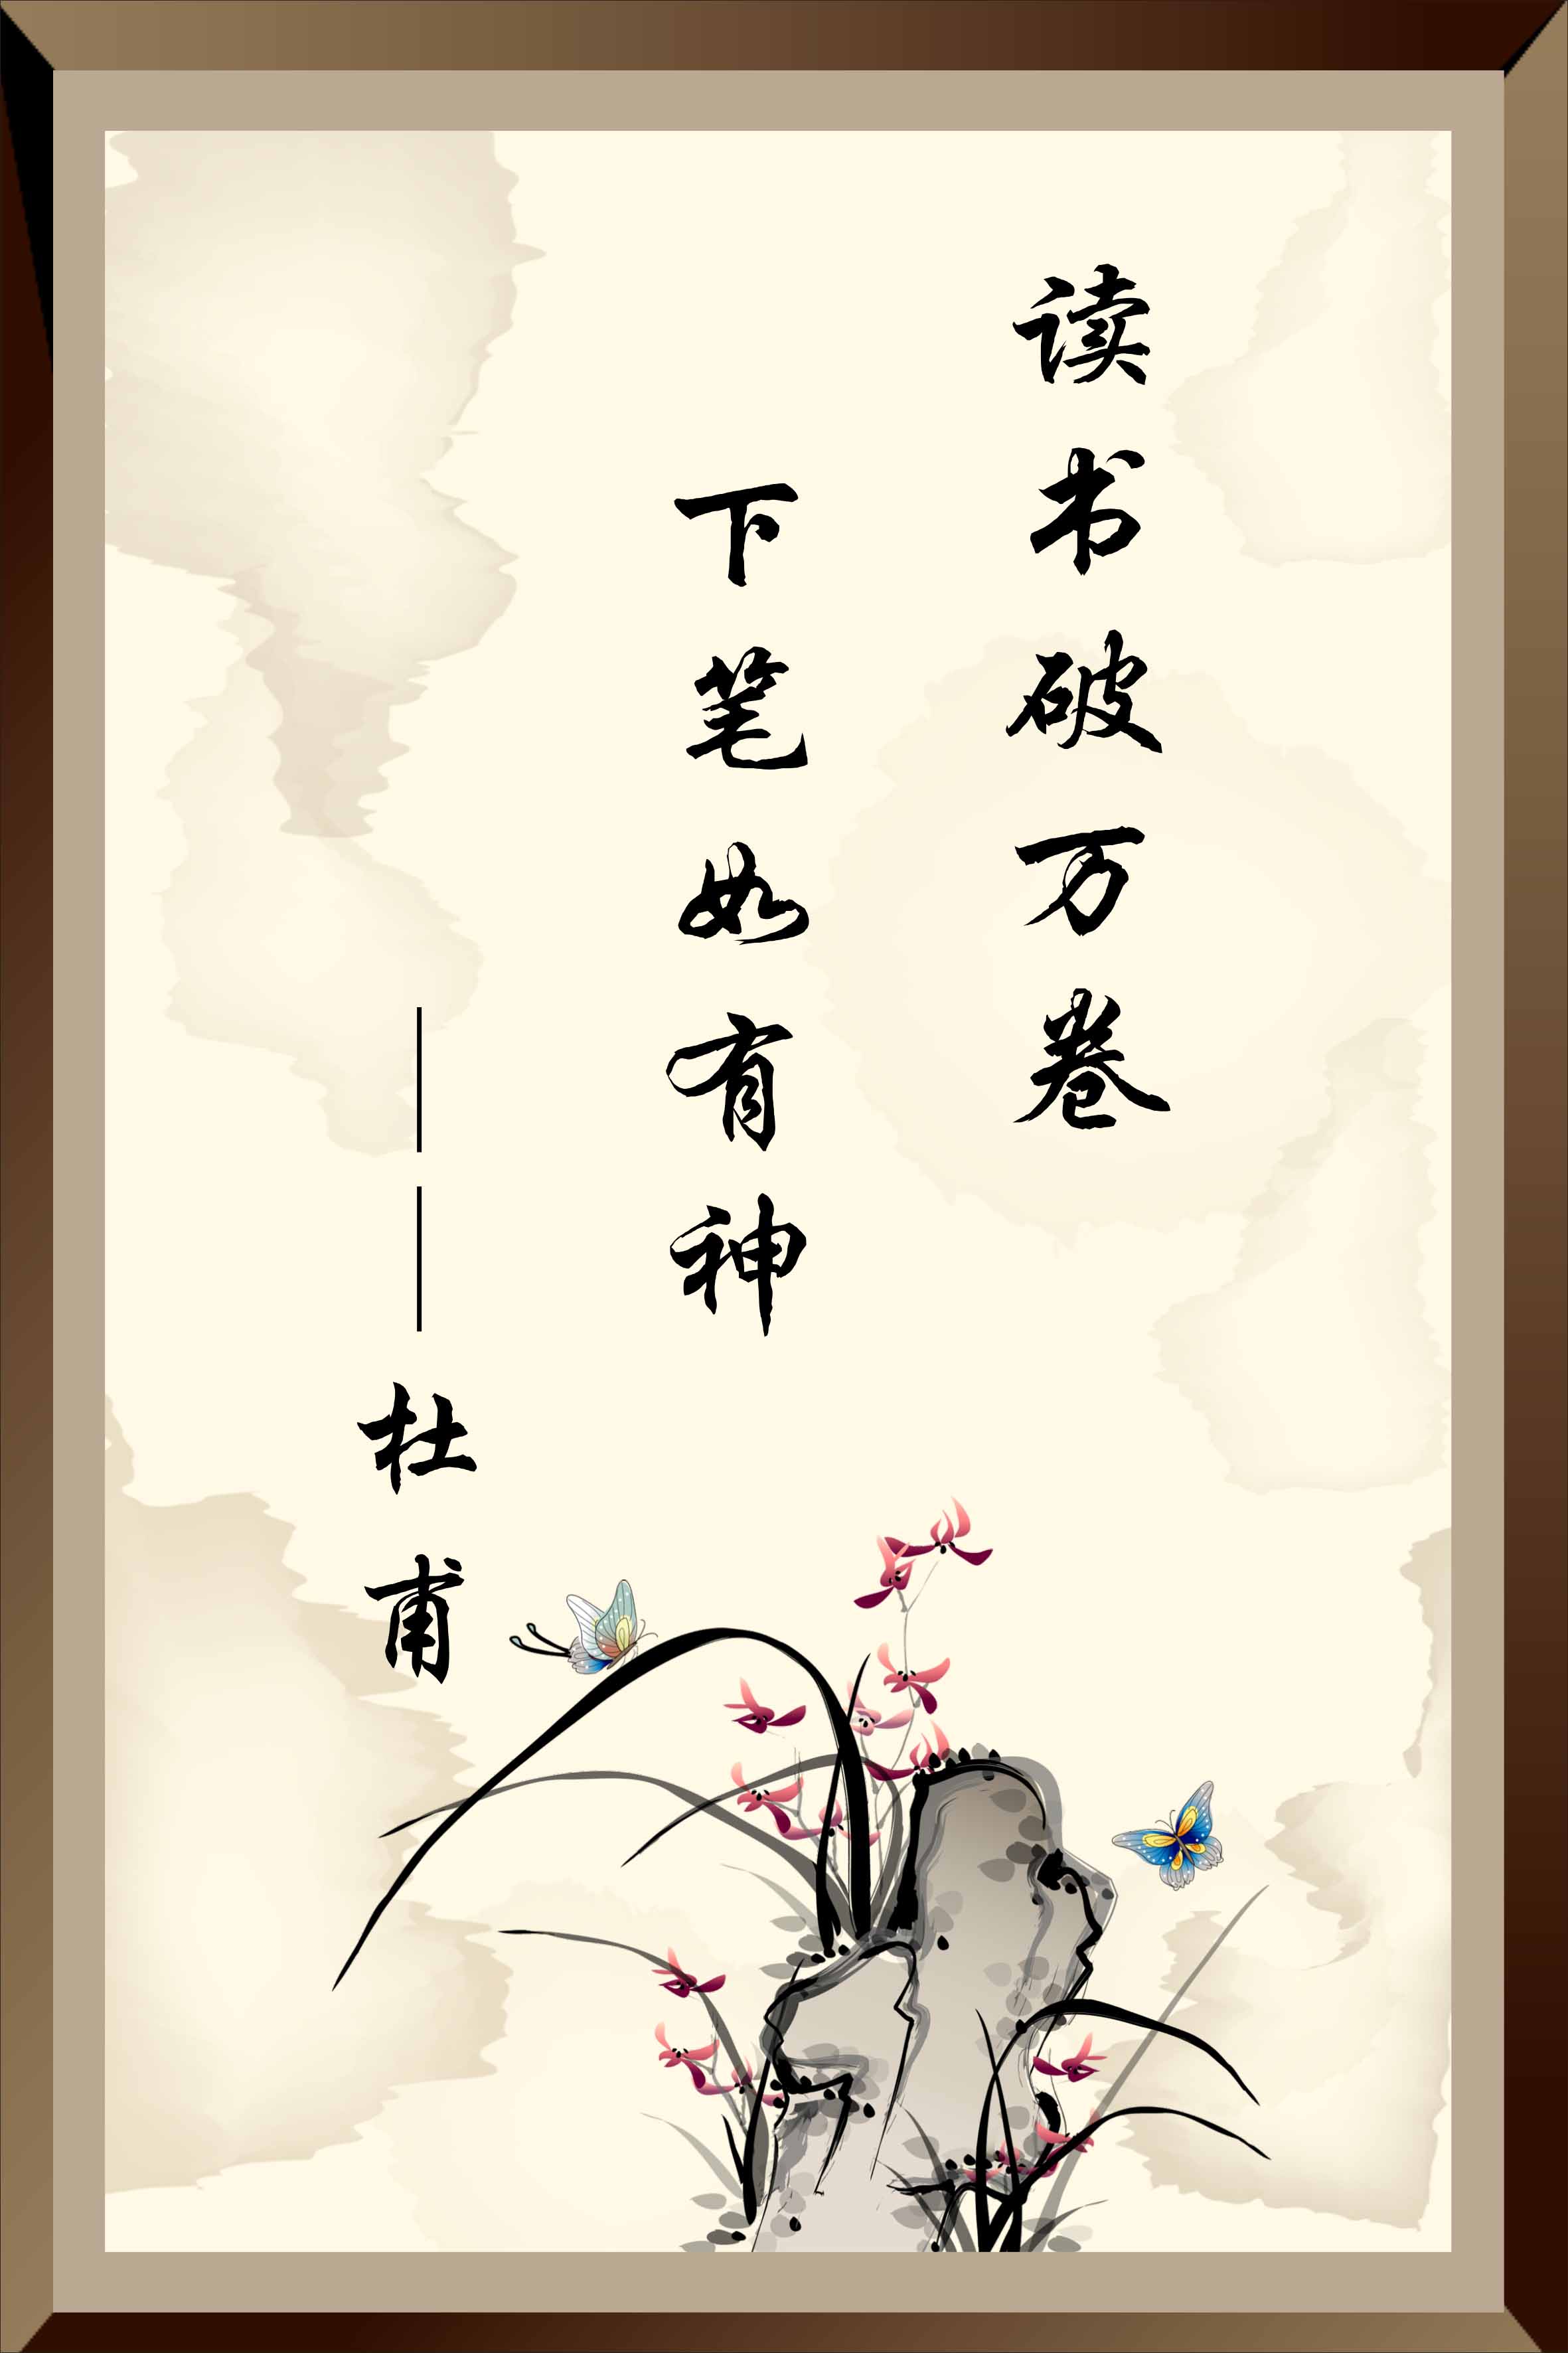 读书破万卷
下笔如有神
——杜甫